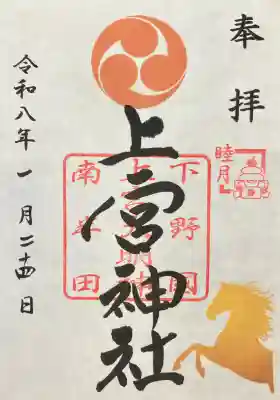 奉拝
睦月
上宮神社
下野國
南半田
令和八年一月二十四日